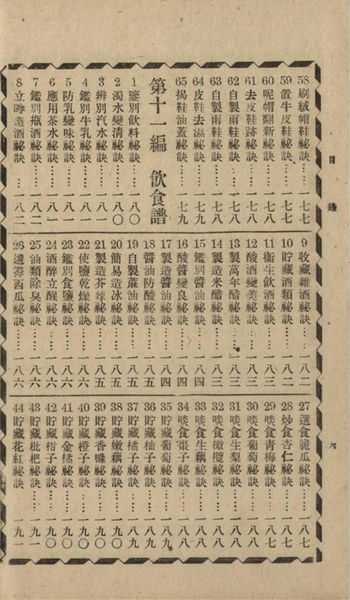 目錄
58 刷絨帽鞋秘訣……一七七
59 置牛皮鞋秘訣……一七七
60 呢帽翻新秘訣……一七八
61 去皮鞋跡秘訣……一七八
62 自製雨鞋秘訣……一七八
63 自製雨鞋秘訣……一七八
64 皮鞋去濕秘訣……一七九
65 揭鞋油蓋秘訣……一七九
第十一編 飲食譜
1 鑒別飲料秘訣……一八〇
2 濁水變清秘訣……一八〇
3 辨別汽水秘訣……一八一
4 鑑別牛乳秘訣……一八一
5 防乳變味秘訣……一八一
6 應用茶水秘訣……一八一
7 鑑別瓶酒秘訣……一八二
8 立時造酒秘訣……一八二
9 收藏雜酒秘訣……一八二
10 貯藏酒類秘訣……一八二
11 衞生飲酒秘訣……一八三
12 酸酒變美秘訣……一八三
13 製萬年醋秘訣……一八三
14 製造米醋秘訣……一八三
15 鑑別醬油秘訣……一八四
16 酸醬變良秘訣……一八四
17 製造醬油秘訣……一八四
18 醬油防酸秘訣……一八四
19 自製蔴油秘訣……一八五
20 簡易造冰秘訣……一八五
21 製造芥辣秘訣……一八五
22 使鹽乾燥秘訣……一八六
23 鑑別食鹽秘訣……一八六
24 酒醉立醒秘訣……一八六
25 油類除臭秘訣……一八六
26 選擇西瓜秘訣……一八六
27 選食甜瓜秘訣……一八七
28 炒食杏仁秘訣……一八七
29 啖食靑梅秘訣……一八七
30 啖食葡萄秘訣……一八八
31 啖食生梨秘訣……一八八
32 啖食橄欖秘訣……一八八
33 啖食生藕秘訣……一八八
34 啖食棗子秘訣……一八八
35 貯藏葡萄秘訣……一八九
36 貯藏柚子秘訣……一八九
37 貯藏橘子秘訣……一八九
38 貯藏嫩藕秘訣……一九〇
39 貯藏香橼秘訣……一九〇
40 貯藏橙子秘訣……一九〇
41 貯藏金橘秘訣……一九〇
42 貯藏柑子秘訣……一九〇
43 貯藏枇杷秘訣……一九一
44 貯藏花紅秘訣……一九一